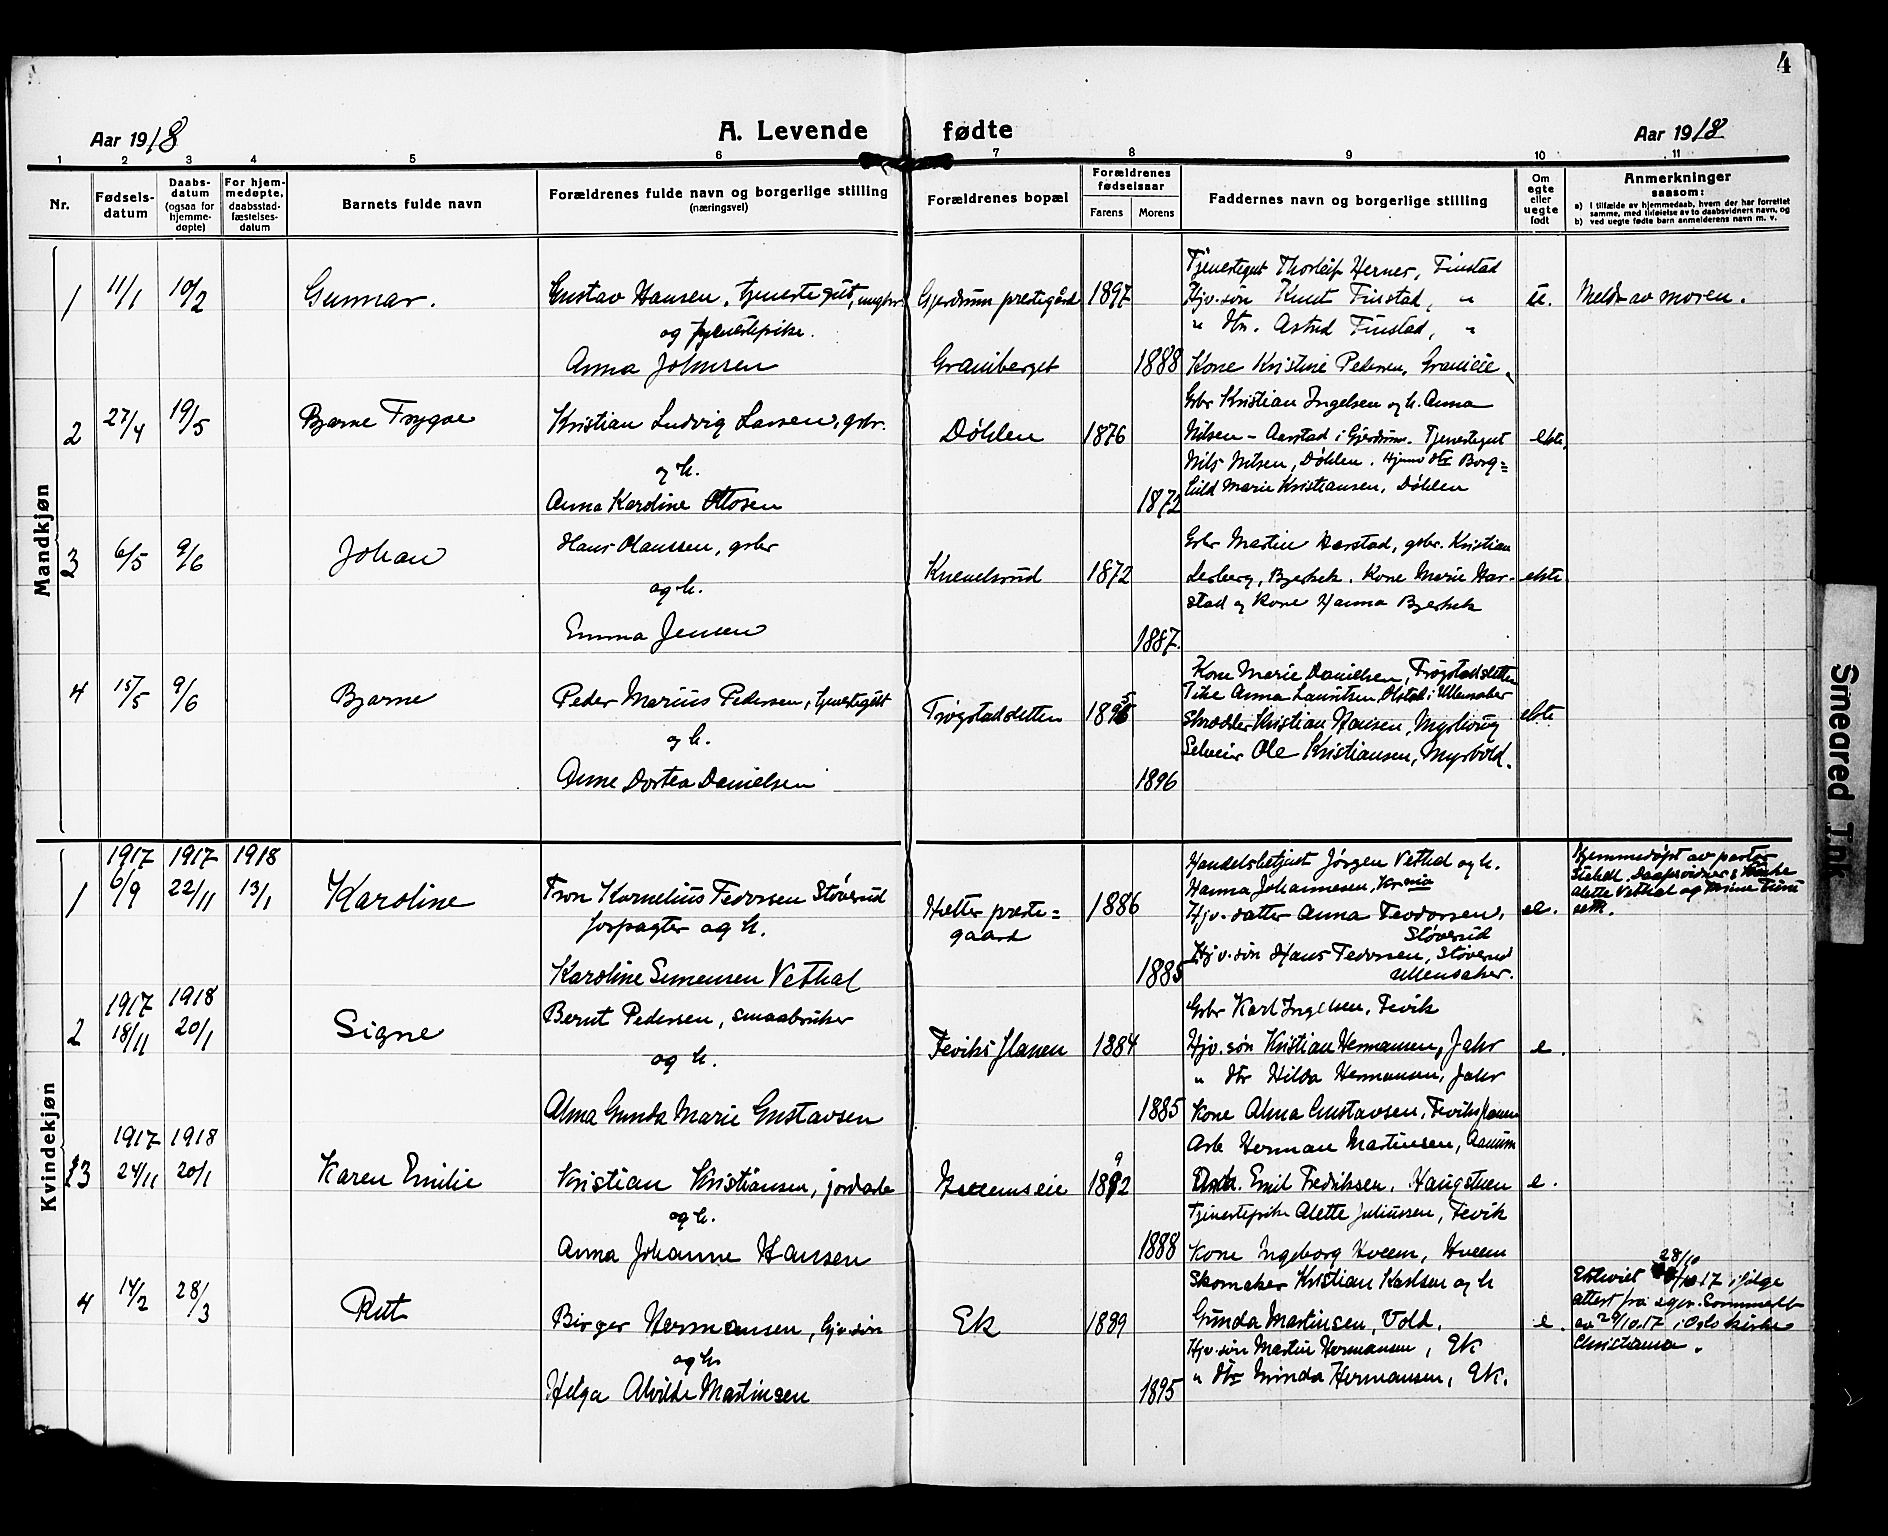 4
Aar 1918
A. Levende fødte
Aar 1918
1 2 3 4 5 6 7 8 9 10 11
Nr.
Fødsels-
datum
Daabs-
datum
(ogsaa for
hjemme-
døpte)
For hjem-
medøpte,
daabsstad-
fæstelses-
datum
Barnets fulde navn
Forældrenes fulde navn og borgerlige stilling
(næringsvei)
Forældrenes bopæl
Forældrenes
fødselsaar
Farens Morens
Faddernes navn og borgerlige stilling
Om
egte
eller
uegte
født
Anmerkninger
saasom:
a) i tilfælde av hjemmedaab, hvem der har forrettet
samme, med tilføielse av to daabsvidners navn, og
b) ved uegte fødte barn anmelderens navn m. v.
Mandkjøn
1 11/1 10/2 Gunnar.
Gustav Hansen, tjenestegut, ungkr.
og tjenestepike.
Anna Johnsen
Gjerdrum prestegård 1897
Graniberget 1888
Tjenestegut Thorleif Herner, Finstad
Hjv. søn Knut Finstad, "
" dtr. Astrid Finstad, "
Kone Kristine Pedersen, Granieie.
u. Meldt av moren.
2 27/4 19/5 Bjarne Trygve
Kristian Ludvig Larsen, grbr.
og h.
Anna Karoline Ottosen
Døhlen 1876
1872
Grbr Kristian Ingelsen og h. Anna
Nilsen - Aarstad i Gjerdrum. Tjenestegut
Nils Nilsen, Døhlen. Hjemv dtr Borg=
hild Marie Kristiansen, Døhlen
ekte
3 6/5 9/6 Johan
Hans Olaussen, grbr
og h.
Emma Jensen
Knevelsrud 1872
1887.
Grbr Martin Harstad, grbr. Kristian
Lerberg, Bjerkek. Kone Marie Har-
stad og Kone Hanna Bjerkek
ekte
4 15/5 9/6 Bjarne
Peder Marius Pedersen, tjenestegutt
og h.
Anne Dortea Danielsen
Trøgstadsletten 1895
1896
Kone Marie Danielsen, Trøgstadsletten
Pike Anna Lauritsen, Olstad i Ullensaker
Skrædder Kristian Hansen,
Selveier Ole Kristiansen, Myrvold.
ekte
Kvindekjøn
1917 1917 1918
1 6/9 22/11 13/1 Karoline
Tron Kornelius Tedorsen Støverud
forpagter og h.
Karoline Simensen Vethal
Hetter preste=
gaard
1886
1885
Handelsbetjent Jørgen Vethal og h.
Hanna Johannesen, Kr.nia
Hjv. datter Anna Teodorsen,
Støverud
Hjv. søn Hans Tedorsen, Støverud
Ullensaker.
e.
Hjemmedøpt av pastor
Daapsvidner:
Alette Vethal og
1917 1918
2 18/11 20/1 Signe
Bernt Pedersen, smaabruker
og h.
Alma Gunda Marie Gustavsen
Feviksflauen 1884
1885
Grbr Karl Ingelsen, Fevik
Hjv. søn Kristian Hermansen, Jahr
" dtr Hilda Hermansen, Jahr
Kone Alma Gustavsen, Feviksflauen
e.
1917 1918
3 24/11 20/1 Karen Emilie
Kristian Kristiansen, jordarb
og h.
Anna Johanne Hansen
Hveemseie 1892
1888
Arb Herman Martinsen, Aanum
Emil Fredriksen, Haugstuen
Tjenestepike Alette Juliussen, Fevik
Kone Ingeborg Hveem, Hveem
e.
4 14/2 28/3 Rut
Birger Hermansen, hjv. søn
og h.
Helga Alvilde Martinsen
Ek 1889
1895
Skomaker Kristian Karlsen og h
Gunda Martinsen, Vold.
Hjv. søn Martin Hermansen, Ek
" dtr Minda Hermansen, Ek.
e.
28/10
Ekteviet 17 ifølge
attest fra sgpr. Sommerfelt
av 29/10.17 i Oslo kirke
Christiania.
Smeared Ink